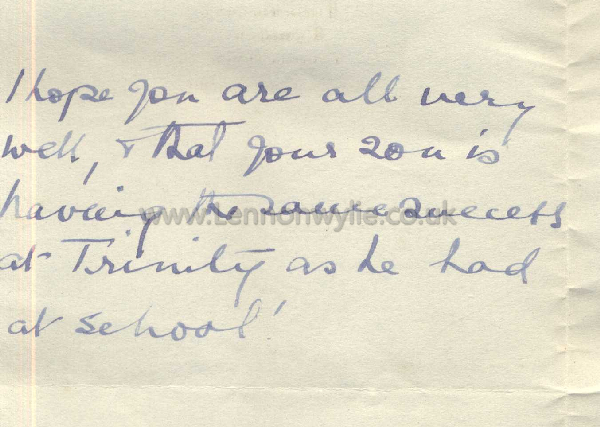 I hope you are all very
well, & that your son is
having the same success
www.Lennonwylie.co.uk
at Trinity as he had
at school'